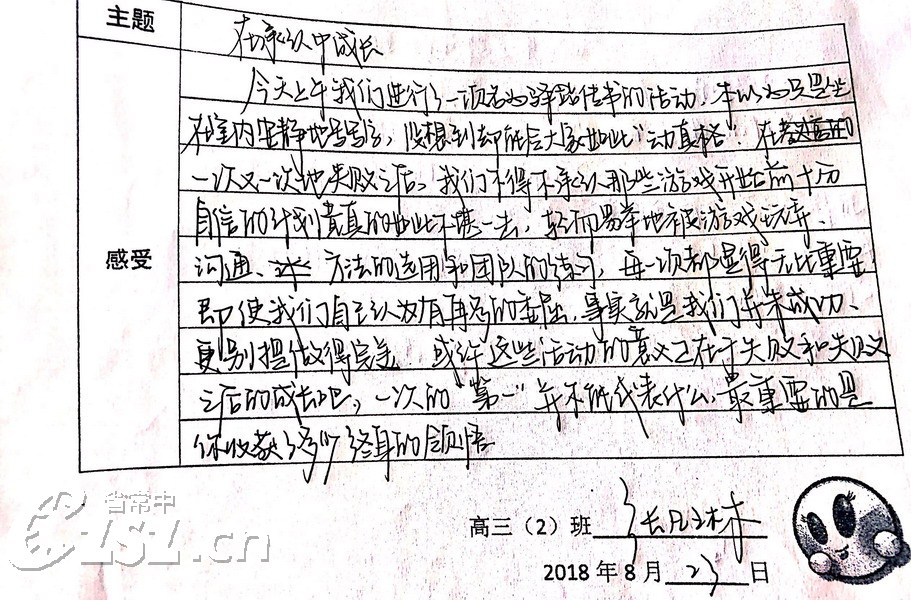 主题
在承认中成长
今天上午我们进行了一项名为驿站传书的活动,本以为只是坐
在室内安静地写写字,没想到却能令大家如此“动真格”。在
一次又一次地失败之后,我们不得不承认那些游戏开始前十分
自信的计划真的如此不堪一击,轻而易举地被游戏玩弄。
感受
沟通、方法的选用和团队的练习,每一项都显得无比重要,
即使我们自认为有再多的委屈,事实就是我们并未成功,
更别提做得完美。或许这些活动的意义正在于失败和失败
之后的成长吧,一次的“第一”并不能代表什么,最重要的是
你收获了多少终身的领悟
高三(2)班
2018年8月23日
省常中
CZSZ.cn